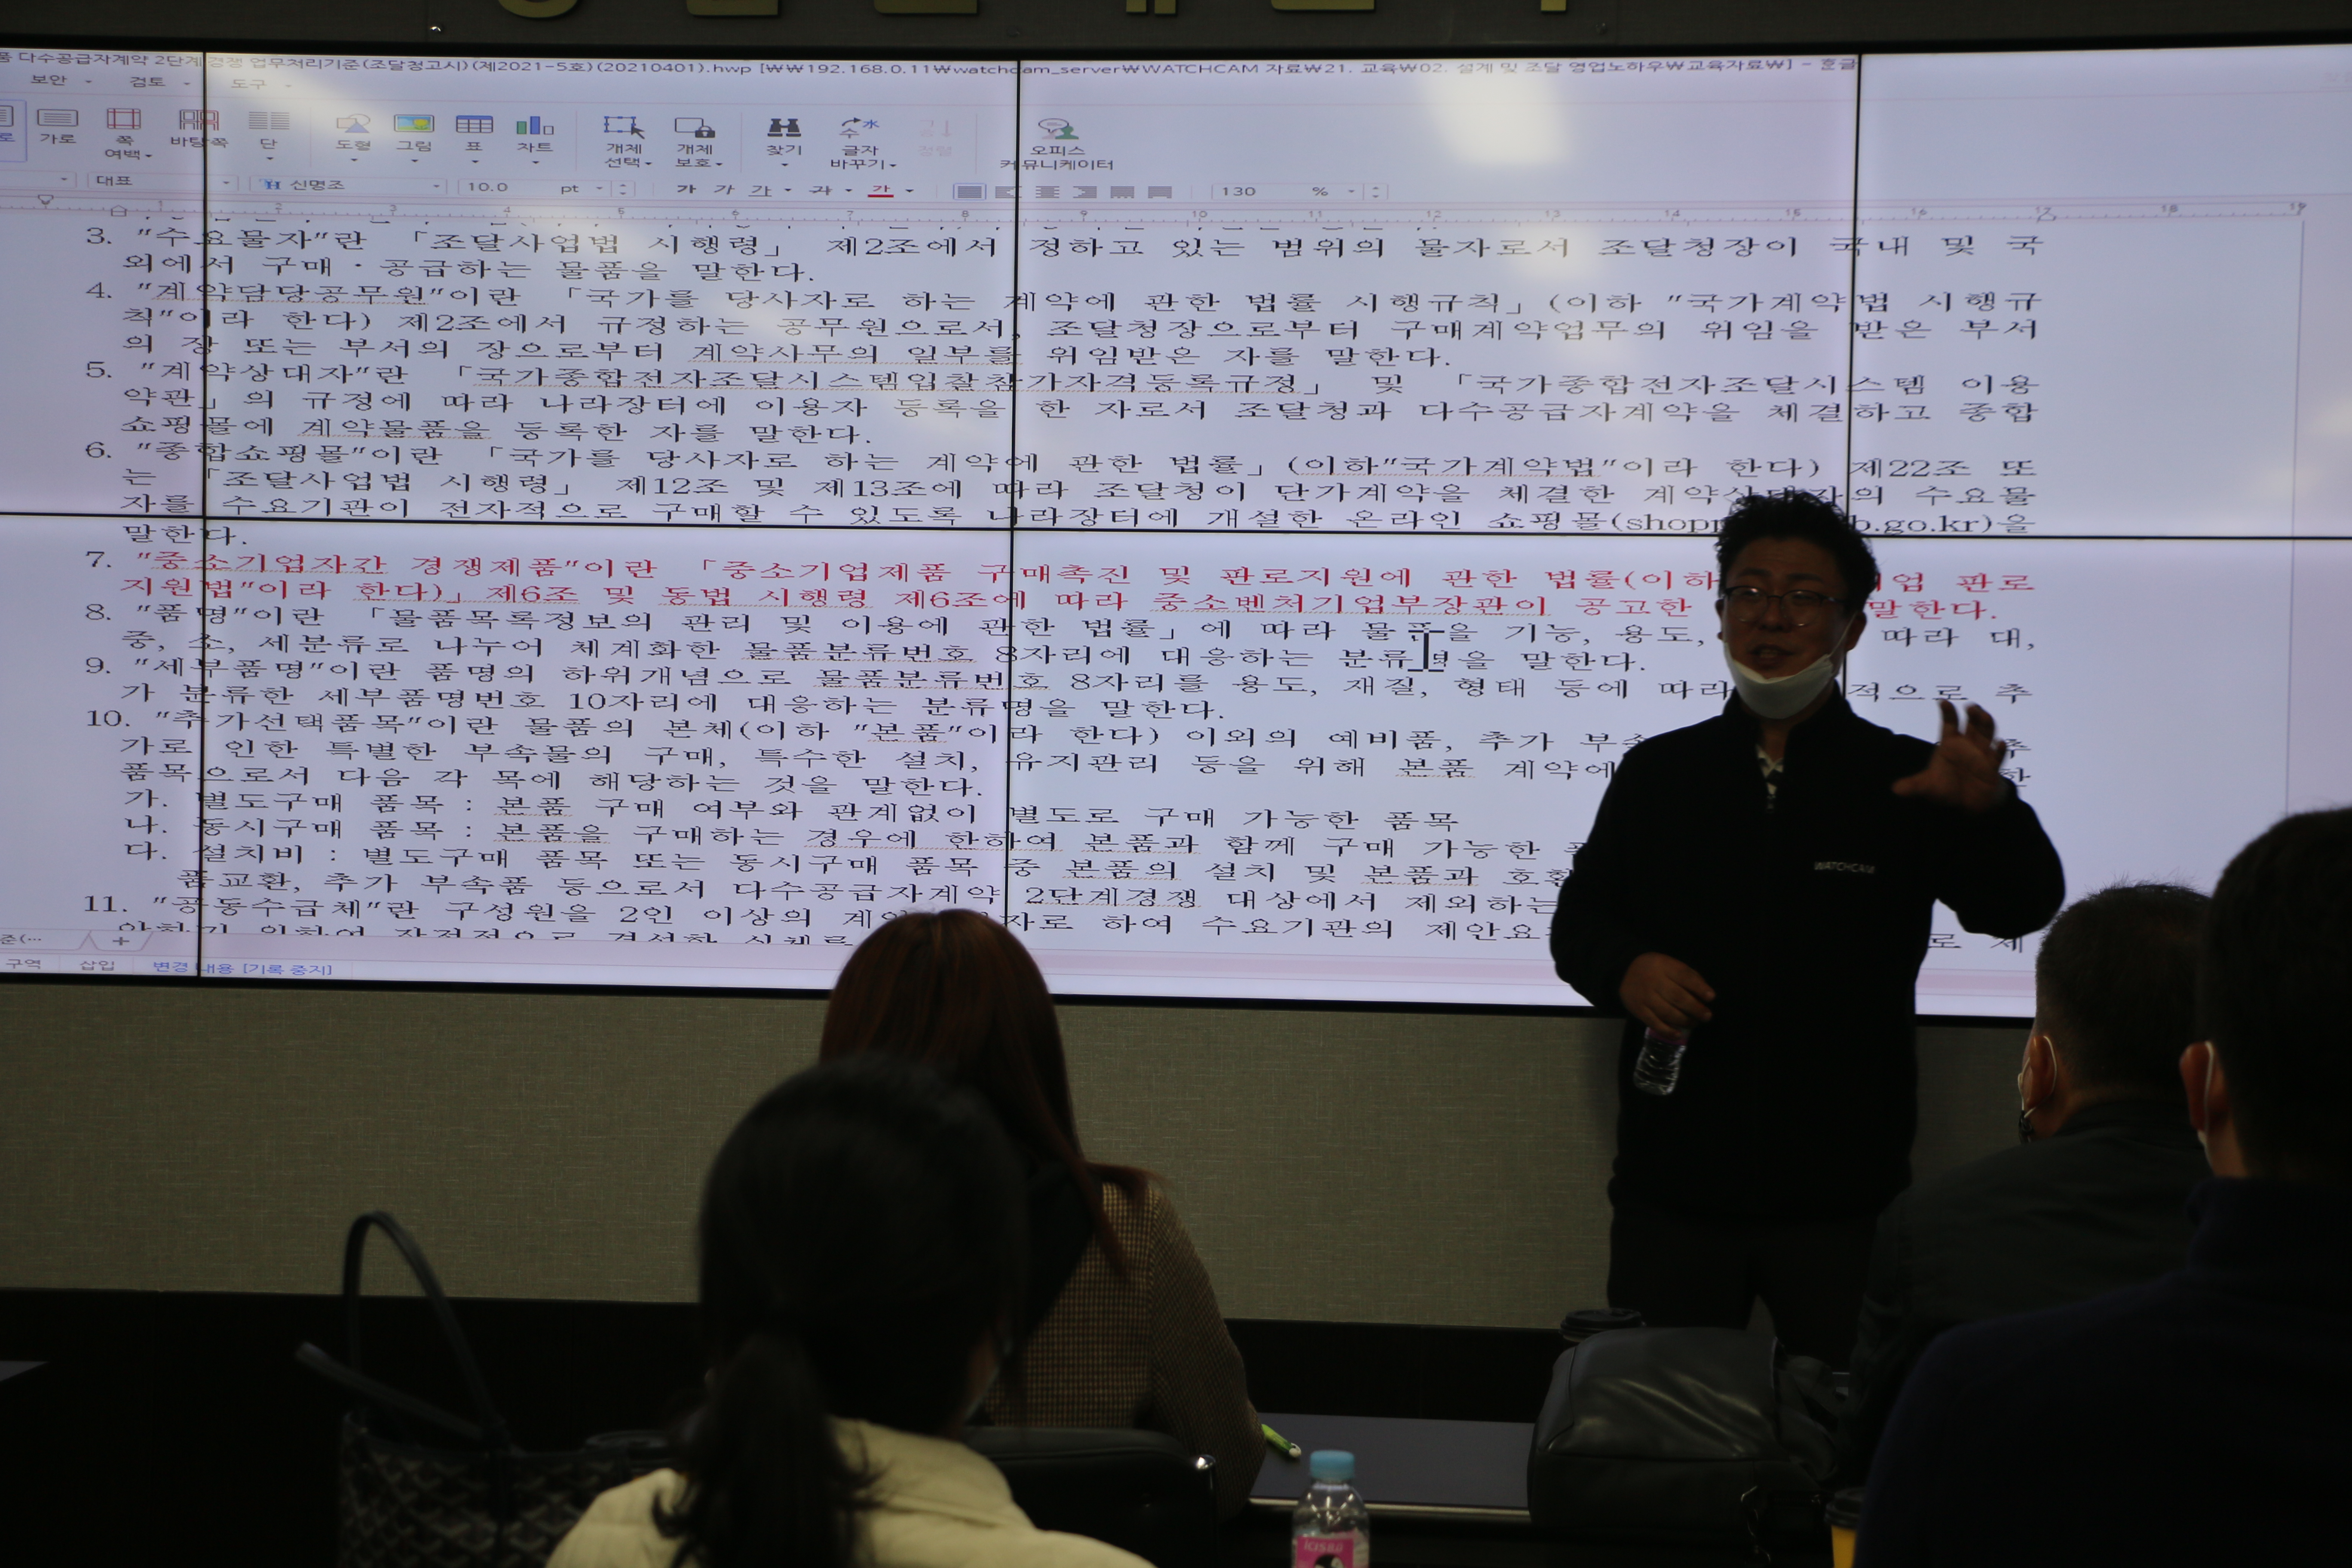 품 다수공급자계약 2단계 경쟁 업무처리기준(조달청고시)(제2021-5호)(20210401).hwp [₩₩192.168.0.11₩watchcam_server₩WATCHCAM 자료₩21. 교육₩02. 설계 및 조달 영업노하우₩교육자료₩] - 한글
보안 검토 도구
가로 쪽 여백 바탕쪽 단 도형 그림 표 차트 개체 선택 개체 보호 찾기 글자 바꾸기 정렬 오피스 커뮤니케이터
대표 신명조 10.0 pt 가 가 가 가 가 130 %
1 2 3 4 5 6 7 8 9 10 11 12 13 14 15 16 17 18 19
3. "수요물자"란 「조달사업법 시행령」 제2조에서 정하고 있는 범위의 물자로서 조달청장이 국내 및 국
외에서 구매·공급하는 물품을 말한다.
4. "계약담당공무원"이란 「국가를 당사자로 하는 계약에 관한 법률 시행규칙」(이하 "국가계약법 시행규
칙"이라 한다) 제2조에서 규정하는 공무원으로서, 조달청장으로부터 구매계약업무의 위임을 받은 부서
의 장 또는 부서의 장으로부터 계약사무의 일부를 위임받은 자를 말한다.
5. "계약상대자"란 「국가종합전자조달시스템입찰참가자격등록규정」 및 「국가종합전자조달시스템 이용
약관」의 규정에 따라 나라장터에 이용자 등록을 한 자로서 조달청과 다수공급자계약을 체결하고 종합
쇼핑몰에 계약물품을 등록한 자를 말한다.
6. "종합쇼핑몰"이란 「국가를 당사자로 하는 계약에 관한 법률」(이하"국가계약법"이라 한다) 제22조 또
는 「조달사업법 시행령」 제12조 및 제13조에 따라 조달청이 단가계약을 체결한 계약상대자의 수요물
자를 수요기관이 전자적으로 구매할 수 있도록 나라장터에 개설한 온라인 쇼핑몰(shopp b.go.kr)을
말한다.
7. "중소기업자간 경쟁제품"이란 「중소기업제품 구매촉진 및 판로지원에 관한 법률(이하 업 판로
지원법"이라 한다)」제6조 및 동법 시행령 제6조에 따라 중소벤처기업부장관이 공고한 말한다.
8. "품명"이란 「물품목록정보의 관리 및 이용에 관한 법률」에 따라 물품을 기능, 용도, 따라 대,
중, 소, 세분류로 나누어 체계화한 물품분류번호 8자리에 대응하는 분류명을 말한다.
9. "세부품명"이란 품명의 하위개념으로 물품분류번호 8자리를 용도, 재질, 형태 등에 따라 적으로 추
가 분류한 세부품명번호 10자리에 대응하는 분류명을 말한다.
10. "추가선택품목"이란 물품의 본체(이하 "본품"이라 한다) 이외의 예비품, 추가 부속 추
가로 인한 특별한 부속물의 구매, 특수한 설치, 유지관리 등을 위해 본품 계약에 한
품목으로서 다음 각 목에 해당하는 것을 말한다.
가. 별도구매 품목 : 본품 구매 여부와 관계없이 별도로 구매 가능한 품목
나. 동시구매 품목 : 본품을 구매하는 경우에 한하여 본품과 함께 구매 가능한
다. 설치비 : 별도구매 품목 또는 동시구매 품목 중 본품의 설치 및 본품과 호환
품교환, 추가 부속품 등으로서 다수공급자계약 2단계경쟁 대상에서 제외하는
11. "공동수급체"란 구성원을 2인 이상의 계약 자로 하여 수요기관의 제안요 로 제
안하기 위하여 잠정적으로 결성한 실체를
준(...
구역 삽입 변경 내용 [기록 중지]
WATCHCAM
ICIS 8.0